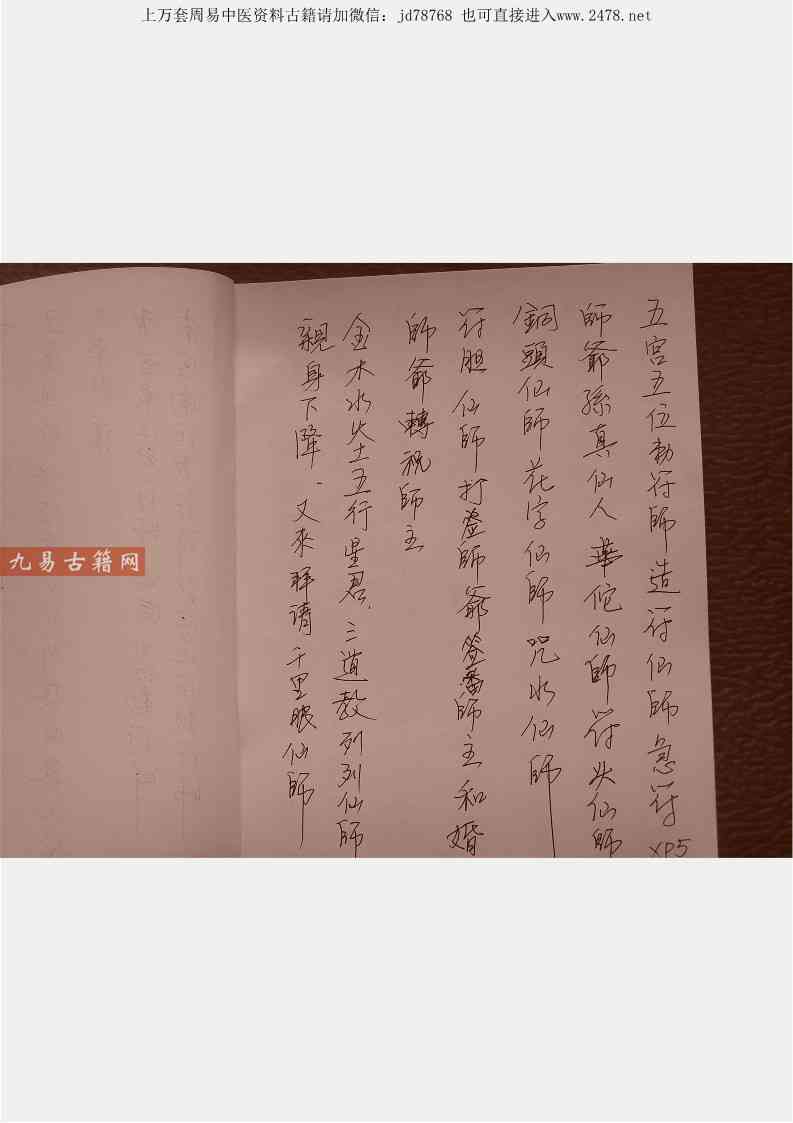 上万套周易中医资料古籍请加微信：jd78768 也可直接进入www.2478.net
五宮五位勅符師造符仙師急符
師爺孫真仙人華佗仙師符头仙師
銅頭仙師花字仙師咒水仙師
符胆仙師打師爺師主和婚
師爺轉祝師主
金木水火土五行星君、三道教列列仙師
親身下降、又來拜请千里眼仙師
XP5
九易古籍网